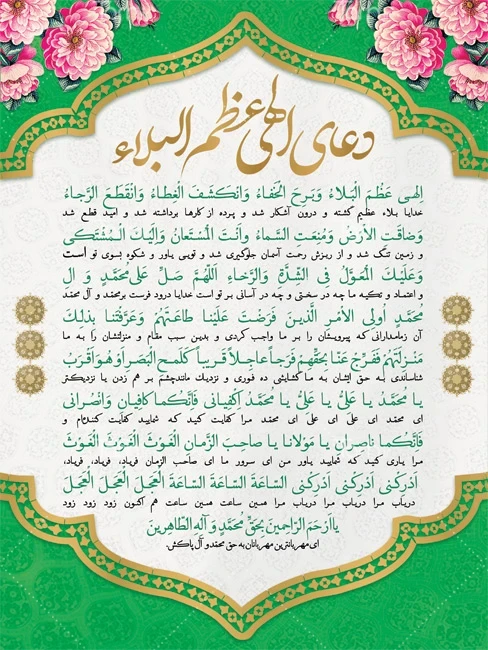 دعای الهی عظم البلاء
اِلهی عَظُمَ الْبَلاءُ وَبَرِحَ الْخَفاءُ وَانْکَشَفَ الْغِطاءُ وَانْقَطَعَ الرَّجاءُ
خدایا بلاء عظیم گشته و درون آشکار شد و پرده از کارها برداشته شد و امید قطع شد
وَضاقَتِ الاْرْضُ وَمُنِعَتِ السَّماءُ واَنْتَ الْمُسْتَعانُ وَاِلَیْکَ الْمُشْتَکی
و زمین تنگ شد و از ریزش رحمت آسمان جلوگیری شد و تویی یاور و شکوه بسوی تو است
وَعَلَیْکَ الْمُعَوَّلُ فِی الشِّدَّةِ وَالرَّخاءِ اَللّهُمَّ صَلِّ عَلی مُحَمَّدٍ وَ الِ
و اعتماد و تکیه ما چه در سختی و چه در آسانی بر تو است خدایا درود فرست برمحمد و آل محمد
مُحَمَّدٍ اُولِی الاْمْرِ الَّذینَ فَرَضْتَ عَلَیْنا طاعَتَهُمْ وَعَرَّفْتَنا بِذلِکَ
آن زمامدارانی که پیرویشان را بر ما واجب کردی و بدین سبب مقام و منزلتشان را به ما
مَنْزِلَتَهُمْ فَفَرِّجْ عَنا بِحَقِّهِمْ فَرَجاً عاجِلاً قَریباً کَلَمْحِ الْبَصَرِ اَوْ هُوَ اَقْرَبُ
شناساندی به حق ایشان به ما گشایشی ده فوری و نزدیک مانندچشم بر هم زدن یا نزدیکتر
یا مُحَمَّدُ یا عَلِیُّ یا عَلِیُّ یا مُحَمَّدُ اِکْفِیانی فَاِنَّکُما کافِیانِ وَانْصُرانی
ای محمد ای علی ای علی ای محمد مرا کفایت کنید که شمایید کفایت کننده‌ام و
فَاِنَّکُما ناصِرانِ یا مَوْلانا یا صاحِبَ الزَّمانِ الْغَوْثَ الْغَوْثَ الْغَوْثَ
مرا یاری کنید که شمایید یاور من ای سرور ما ای صاحب الزمان فریاد، فریاد، فریاد،
اَدْرِکْنی اَدْرِکْنی اَدْرِکْنی السّاعَةَ السّاعَةَ السّاعَةَ الْعَجَلَ الْعَجَلَ الْعَجَلَ
دریاب مرا دریاب مرا دریاب مرا همین ساعت همین ساعت هم اکنون زود زود زود
یا اَرْحَمَ الرّاحِمینَ بِحَقِّ مُحَمَّدٍ وَ آلِهِ الطّاهِرینَ
ای مهربانترین مهربانان به حق محمد و آل پاکش.